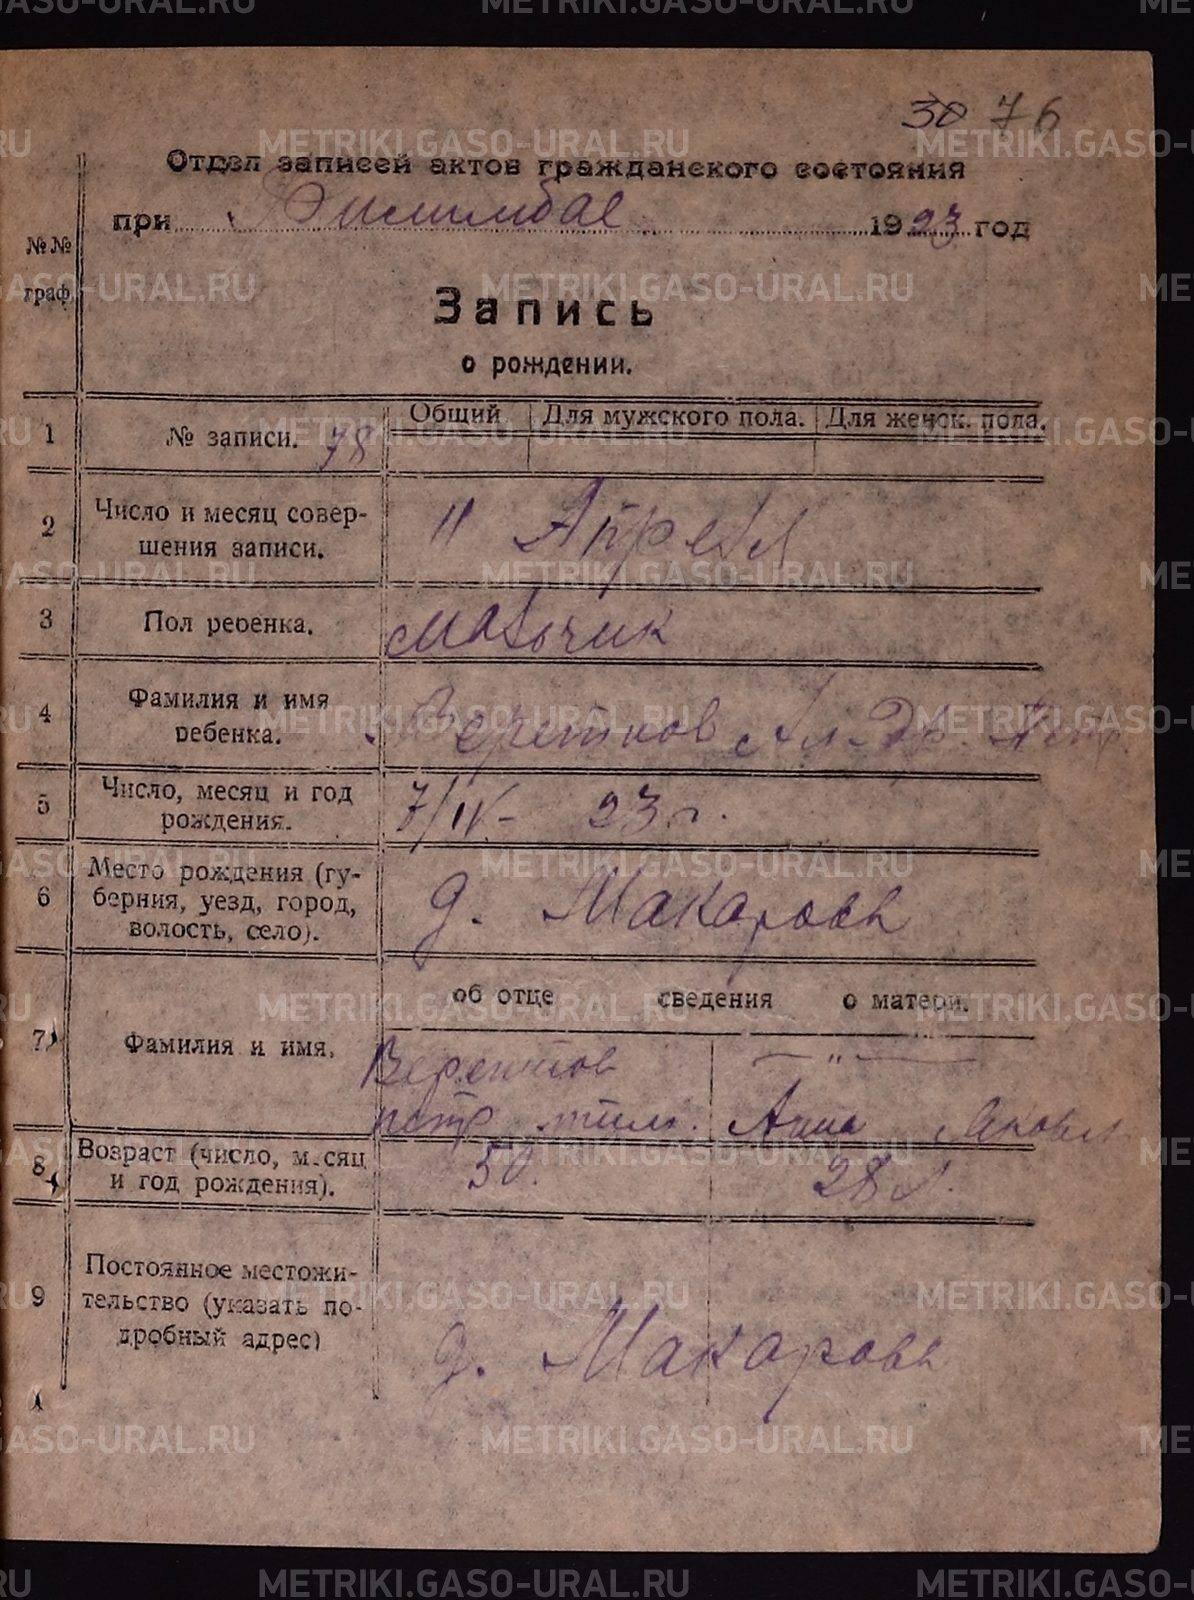 30 76
Отдел записей актов гражданского состояния
при Билимбае 1923 год
№№
граф.
Запись
о рождении.
1 № записи. 78 Общий Для мужского пола. Для женск. пола.
2 Число и месяц совер-
шения записи.
11 Апреля
3 Пол ребенка. мальчик
4 Фамилия и имя
ребенка.
Веретнов Ал-др. Петр.
5 Число, месяц и год
рождения.
7/IV- 23 г.
6 Место рождения (гу-
берния, уезд, город,
волость, село).
д. Макаровы
об отце сведения о матери.
7 Фамилия и имя.
Веретнов — " —
петр тим. Анна Яковл
8 Возраст (число, месяц
и год рождения).
50. 28 л.
9 Постоянное местожи-
тельство (указать по-
дробный адрес)
д. Макаровы
METRIKI.GASO-URAL.RU